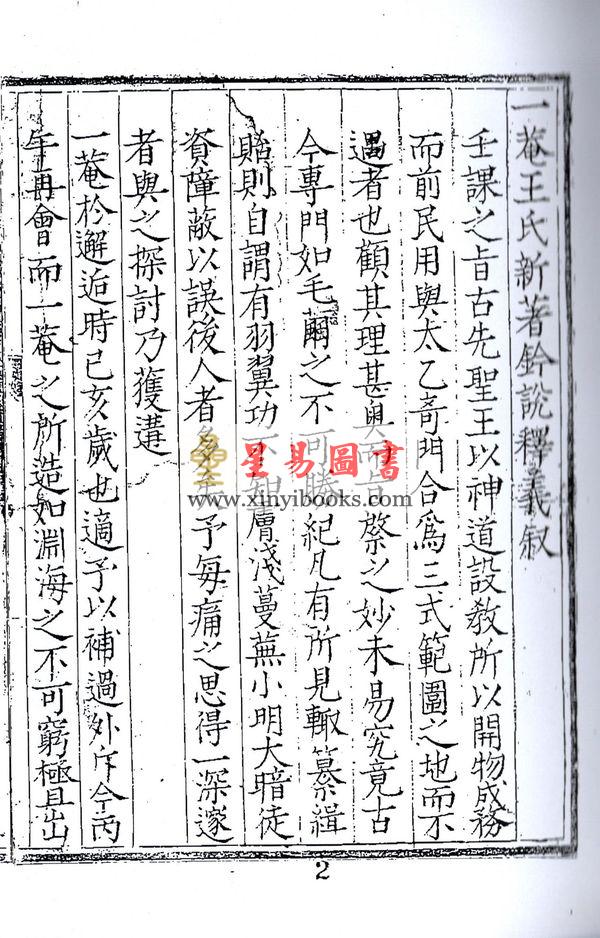 一菴王氏新著鈐說釋義叙
壬課之旨古先聖王以神道設教所以開物成務
而前民用與太乙奇門合爲三式範圍之地而不
過者也顧其理甚奧棨之妙未易究竟古
今專門如毛繭之不可勝紀凡有所見輙纂緝
貽則自謂有羽翼功不知膚淺蔓蕪小明大暗徒
資障蔽以誤後人者多矣予每痛之思得一深邃
者與之探討乃獲遘
一菴於邂逅時已亥歲也適予以補過外斥今丙
午再會而一菴之所造如淵海之不可窮極且出
星易圖書
www.xinyibooks.com
2